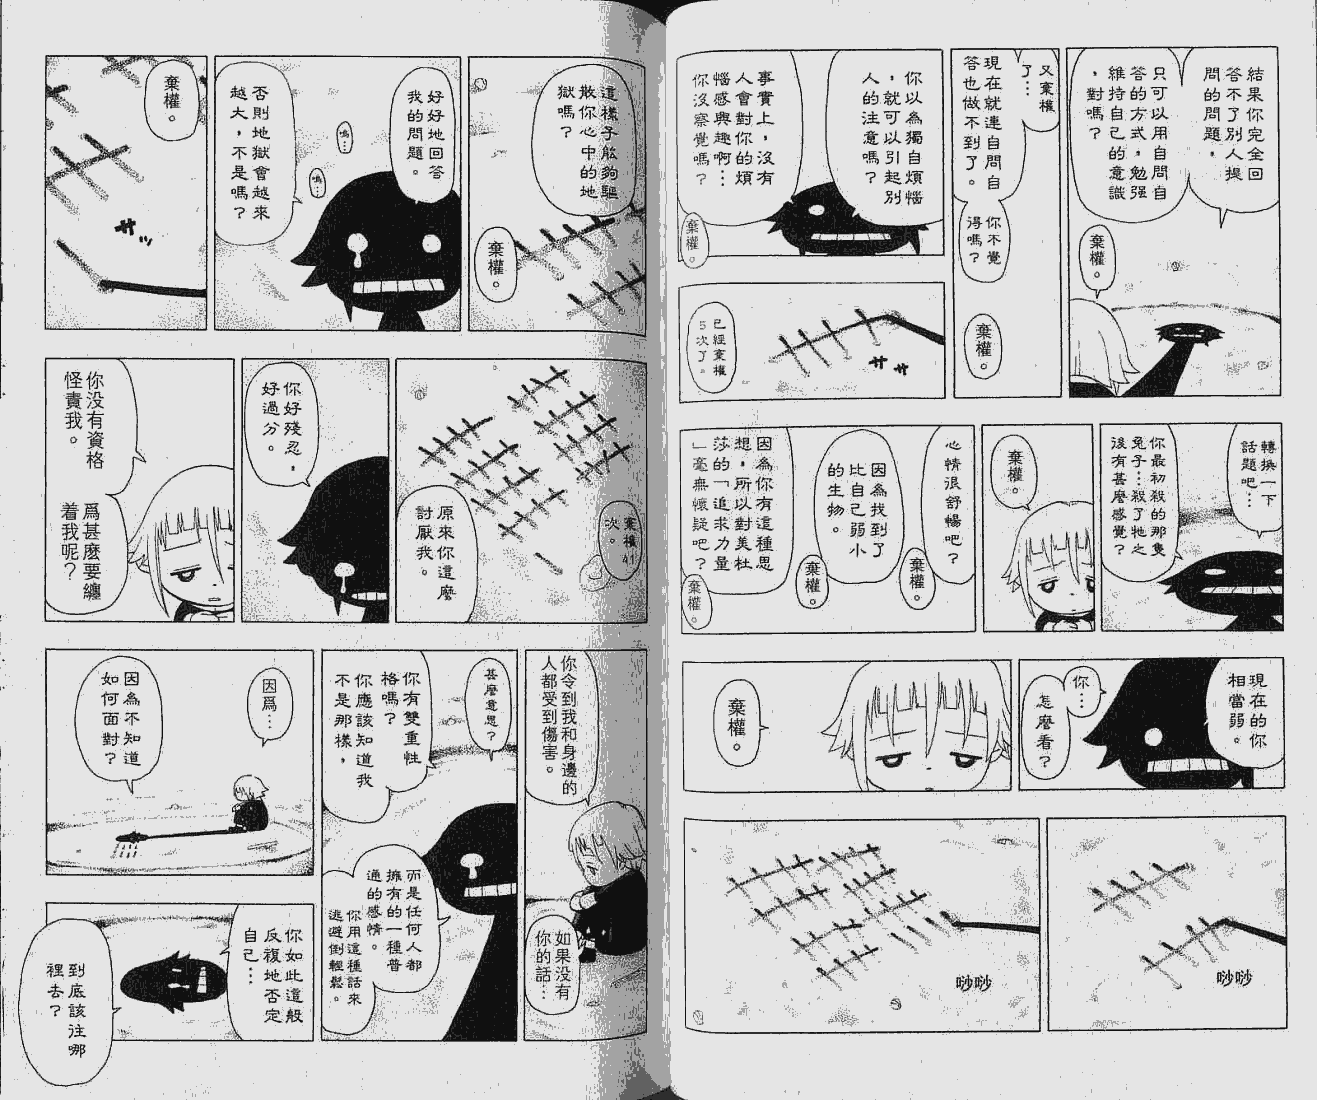 結果你完全回
答不了別人提
問的問題，
只可以用自問自
答的方式，勉强
維持自己的意識
，對嗎？
棄權。
又棄權
了…
現在就連自問自
答也做不到了。
你不覺
得嗎？
棄權。
你以為獨自煩惱
，就可以引起別
人的注意嗎？
事實上，沒有
人會對你的煩
惱感興趣啊…
你沒察覺嗎？
棄權。
サ
サ
已經棄權
５次了。
轉換一下
話題吧…
你最初殺的那隻
兔子…殺了牠之
後有甚麼感覺？
棄權。
心情很舒暢吧？
棄權。
因為找到了
比自己弱小
的生物。
棄權。
因為你有這種思
想，所以對美杜
莎的「追求力量
」毫無懷疑吧？
棄權。
現在的你
相當弱。
你…
怎麼看？
棄權。
唦唦
唦唦
這樣子能夠驅
散你心中的地
獄嗎？
棄權。
好好地回答
我的問題。
嗚…
嗚…
否則地獄會越來
越大，不是嗎？
棄權。
サッ
棄權41
次。
原來你這麼
討厭我。
你好殘忍，
好過分。
你没有資格
怪責我。
爲甚麼要纏
着我呢？
你令到我和身邊的
人都受到傷害。
如果没有
你的話…
甚麼意思？
你有雙重性
格嗎？
你應該知道我
不是那樣，
而是任何人都
擁有的一種普
通的感情。
你用這種話來
逃避倒輕鬆。
因爲…
因為不知道
如何面對？
你如此這般
反複地否定
自己…
到底該往哪
裡去？